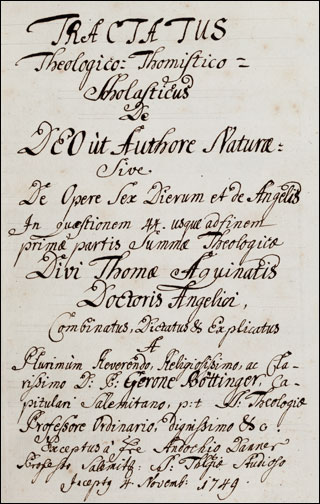 TRACTATUS
Theologico= Thomistico=
Scholasticus
De
DEO ùt Authore Naturæ=
Sive
De Opere Sex Dierum et de Angelis
In quæstionem 44. usque ad finem
primæ partis Summæ Theologicæ
Divi Thomæ Aquinatis
Doctoris Angelici,
Combinatus, Dictatus & Explicatus
A
Plurimùm Reverendo, Religiosissimo, ac Cla-
rissimo D: P: Gerone Böttinger, Ca-
pitulari Salemitano, p:t SS. Theologiæ
Professore Ordinario, Dignissimo &c
Exceptus à Fre Andochio Danner
Professo Salemitz: SS. Tolgiæ Studioso
Incepty 4 Novemb: 1749.